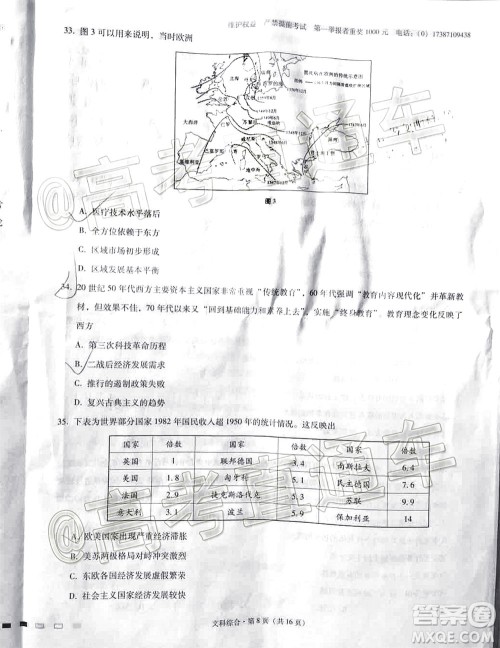 维护权益 严禁提前考试 第一举报者重奖 1000 元 电话:(0) 17387109438
33. 图 3 可以用来说明，当时欧洲
大西洋
巴黎
地中海
图 3
A. 医疗技术水平落后
B. 全方位依赖于东方
C. 区域市场初步形成
D. 区域发展基本平衡
34. 20 世纪 50 年代西方主要资本主义国家非常重视“传统教育”，60 年代强调“教育内容现代化”并革新教
材，但效果不佳，70 年代以来又“回到基础能力和素养上去”，实施“终身教育”。教育理念变化反映了
西方
A. 第三次科技革命历程
B. 二战后经济发展需求
C. 推行的遏制政策失败
D. 复兴古典主义的趋势
35. 下表为世界部分国家 1982 年国民收入超 1950 年的统计情况。这反映出
国家 倍数 国家 倍数 国家 倍数
英国 1 联邦德国 3.4 南斯拉夫 6.4
美国 1.8 匈牙利 民主德国
法国 2.9 捷克斯洛伐克 苏联 9.9
意大利 3.1 波兰 5.9 保加利亚 14
A. 欧美国家出现严重经济滞胀
B. 美苏两极格局对峙冲突激烈
C. 东欧各国国民经济虚假繁荣
D. 社会主义国家经济发展较快
文科综合·第 8 页（共 16 页）
高考直通车
高考直通车
作业帮
www.zuoyebang.com